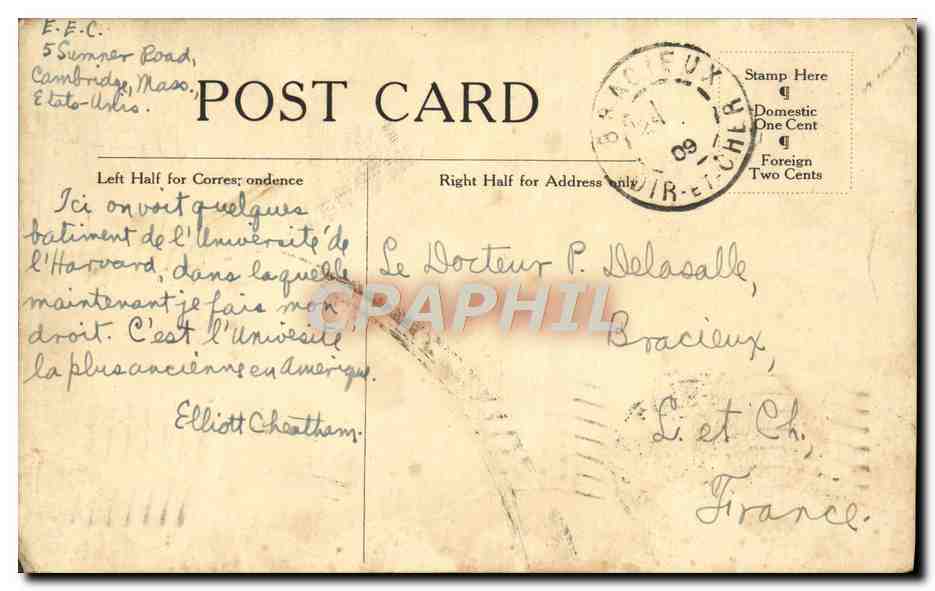 E.E.C.
5 Sumner Road,
Cambridge, Mass.,
Etats-Unis.
POST CARD
BRACIEUX
24
09
LOIR-ET-CHER
Stamp Here
¶
Domestic
One Cent
¶
Foreign
Two Cents
Left Half for Corres; ondence
Right Half for Address only
Ici on voit quelques
batiment de l'Université de
l'Harvard, dans laquelle
maintenant je fais mon
droit. C'est l'Univesité
la plus ancienne en Amérique.
Elliott Cheatham.
Le Docteur P. Delasalle,
Bracieux,
L. et Ch,
France.
CPAPHIL